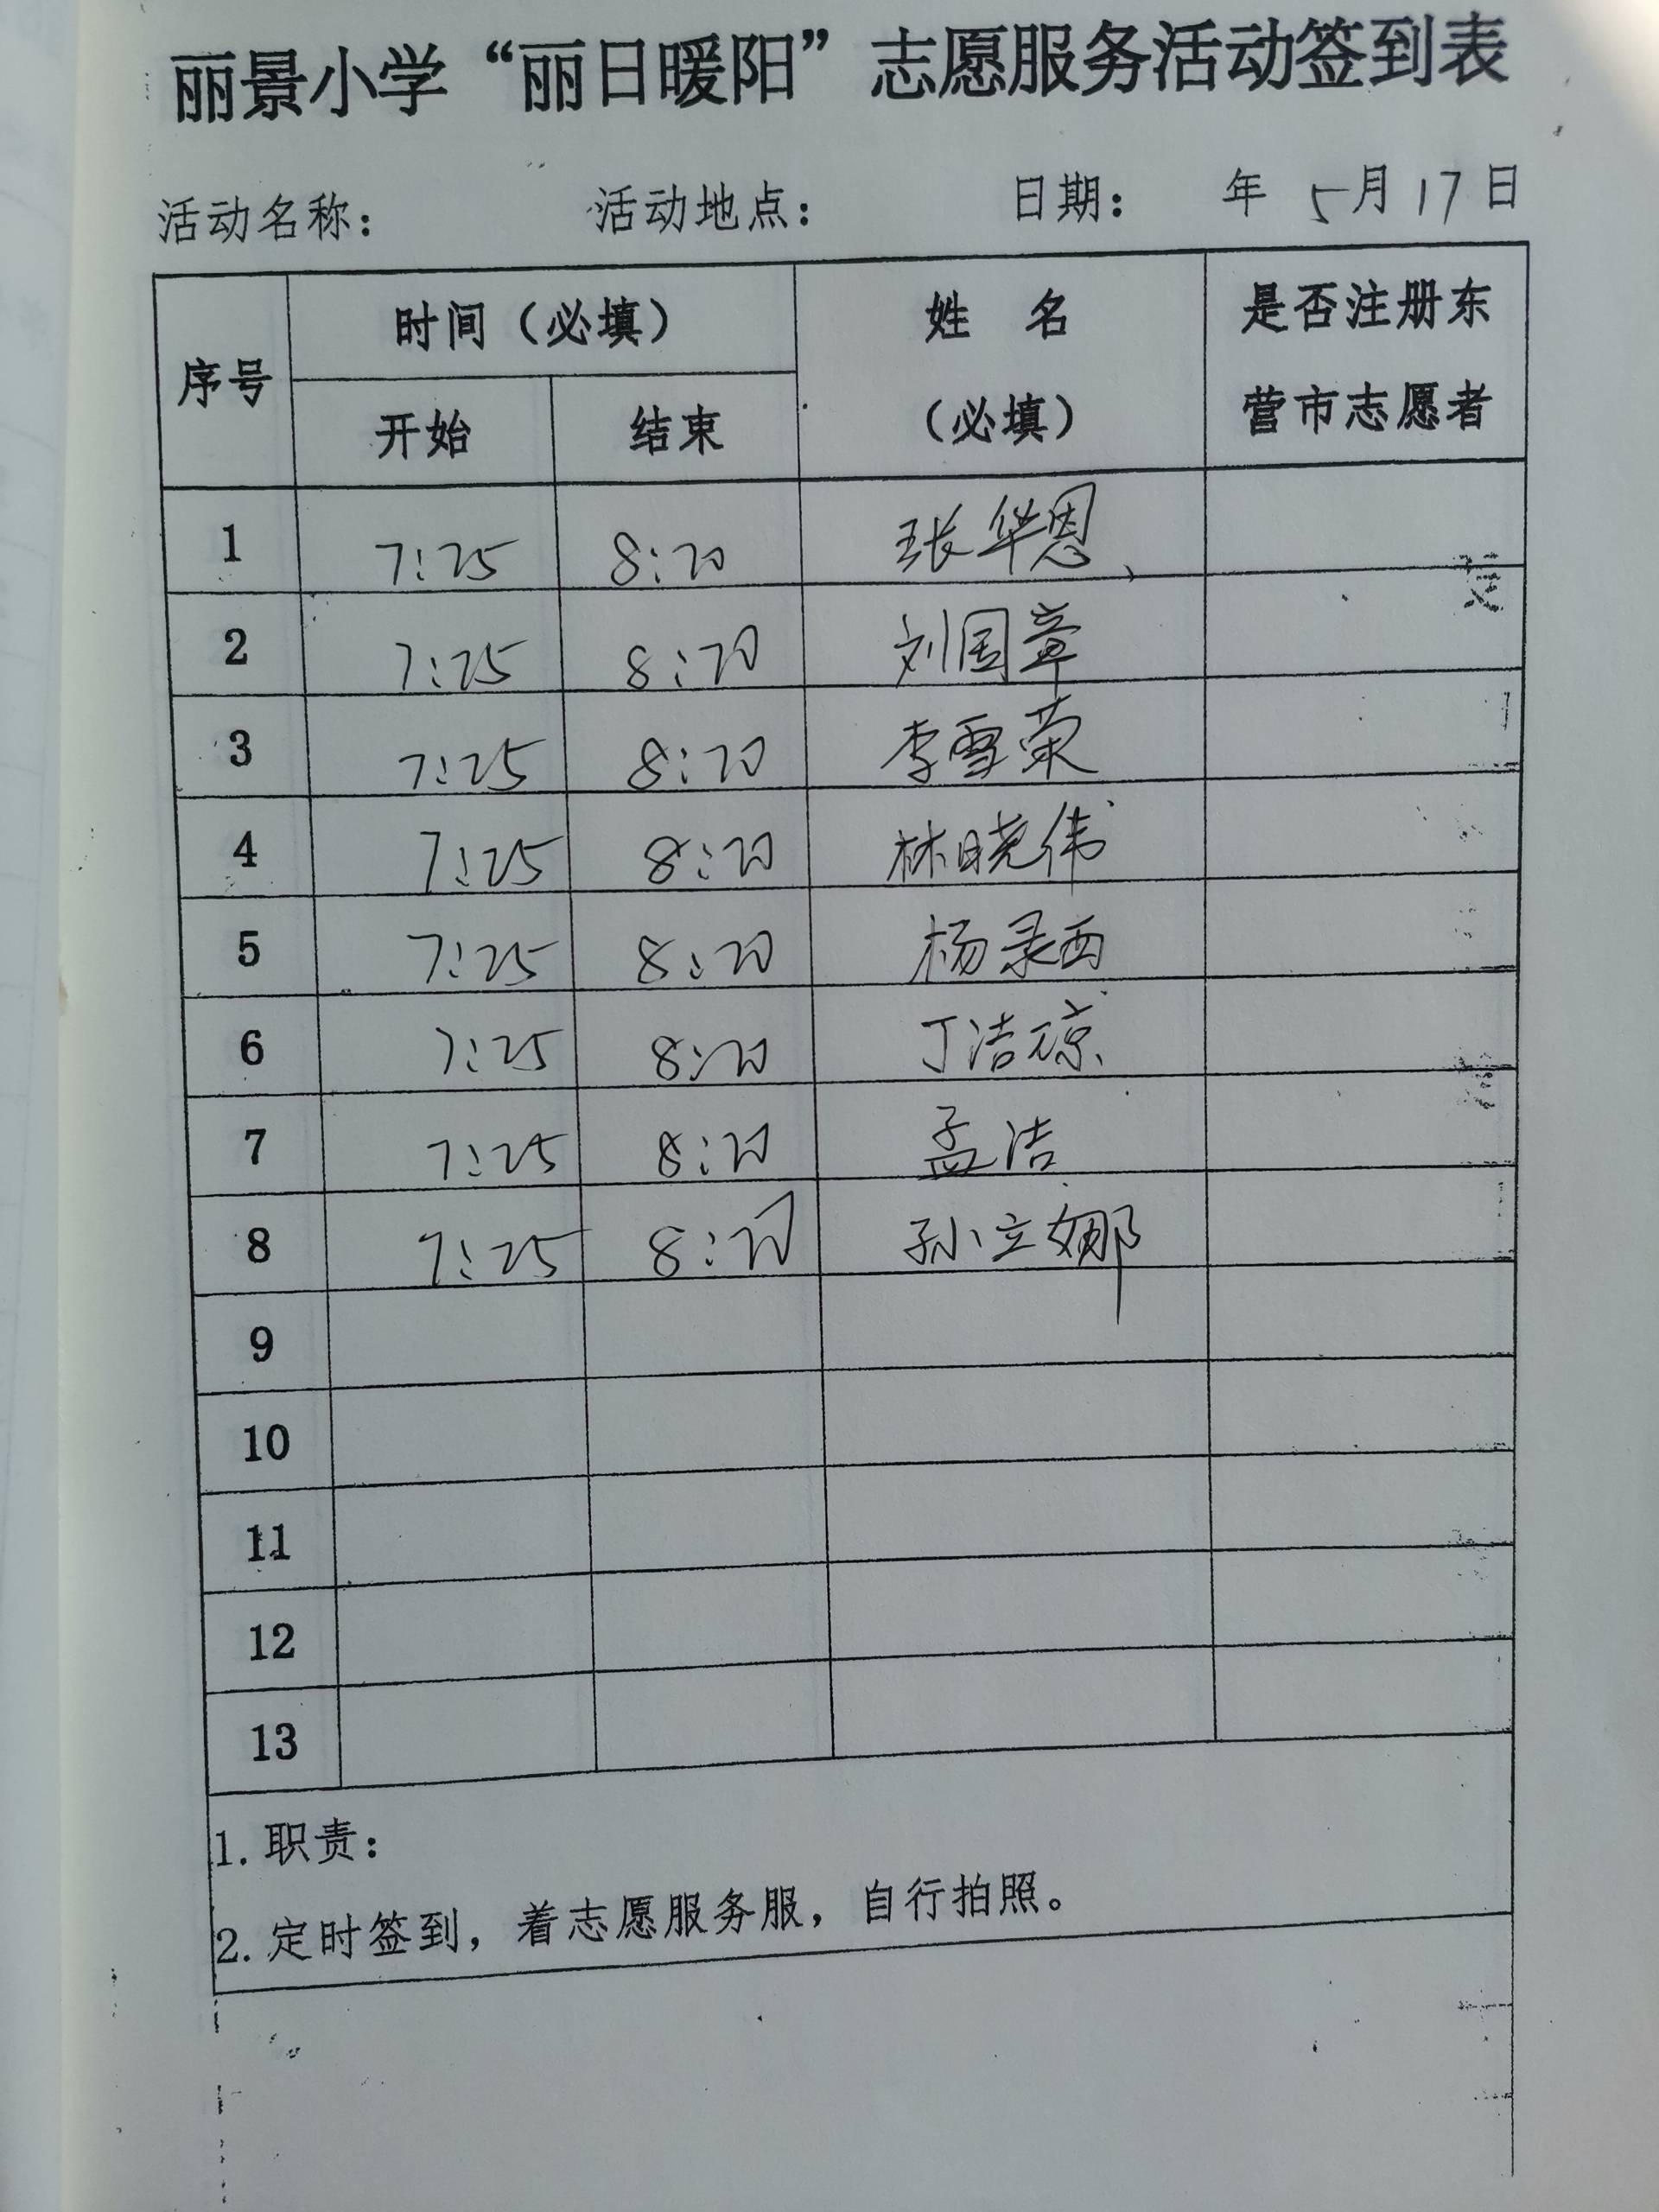 丽景小学“丽日暖阳”志愿服务活动签到表
活动名称： 活动地点： 日期： 年 5月17日
序号 时间（必填） 姓 名 是否注册东
开始 结束 （必填） 营市志愿者
1 7:25 8:20 张华恩
2 7:25 8:20 刘国章
3 7:25 8:20 李雪荣
4 7:25 8:20 林晓伟
5 7:25 8:20 杨录西
6 7:25 8:20 丁洁琼
7 7:25 8:20 孟洁
8 7:25 8:20 孙立娜
9
10
11
12
13
1. 职责：
2. 定时签到，着志愿服务服，自行拍照。